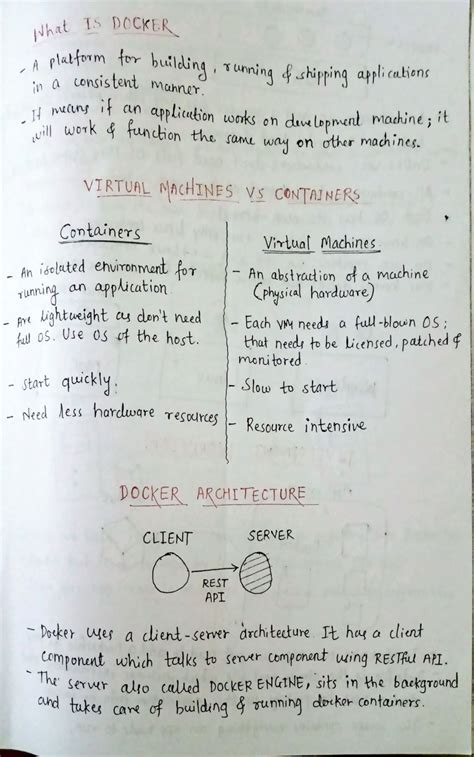 What IS DOCKER
- A platform for building, running & shipping applications
in a consistent manner.
- It means if an application works on development machine; it
will work & function the same way on other machines.
VIRTUAL MACHINES VS CONTAINERS
Containers
- An isolated environment for
running an application
- Are lightweight as don't need
full OS. Use OS of the host.
- Start quickly.
- Need less hardware resources
Virtual Machines
- An abstraction of a machine
(physical hardware)
- Each VM needs a full-blown OS;
that needs to be licensed, patched &
monitored.
- Slow to start
- Resource intensive
DOCKER ARCHITECTURE
CLIENT SERVER
REST
API
- Docker uses a client-server architecture. It has a client
component which talks to server component using RESTful API.
- The server also called DOCKER ENGINE, sits in the background
and takes care of building & running docker containers.